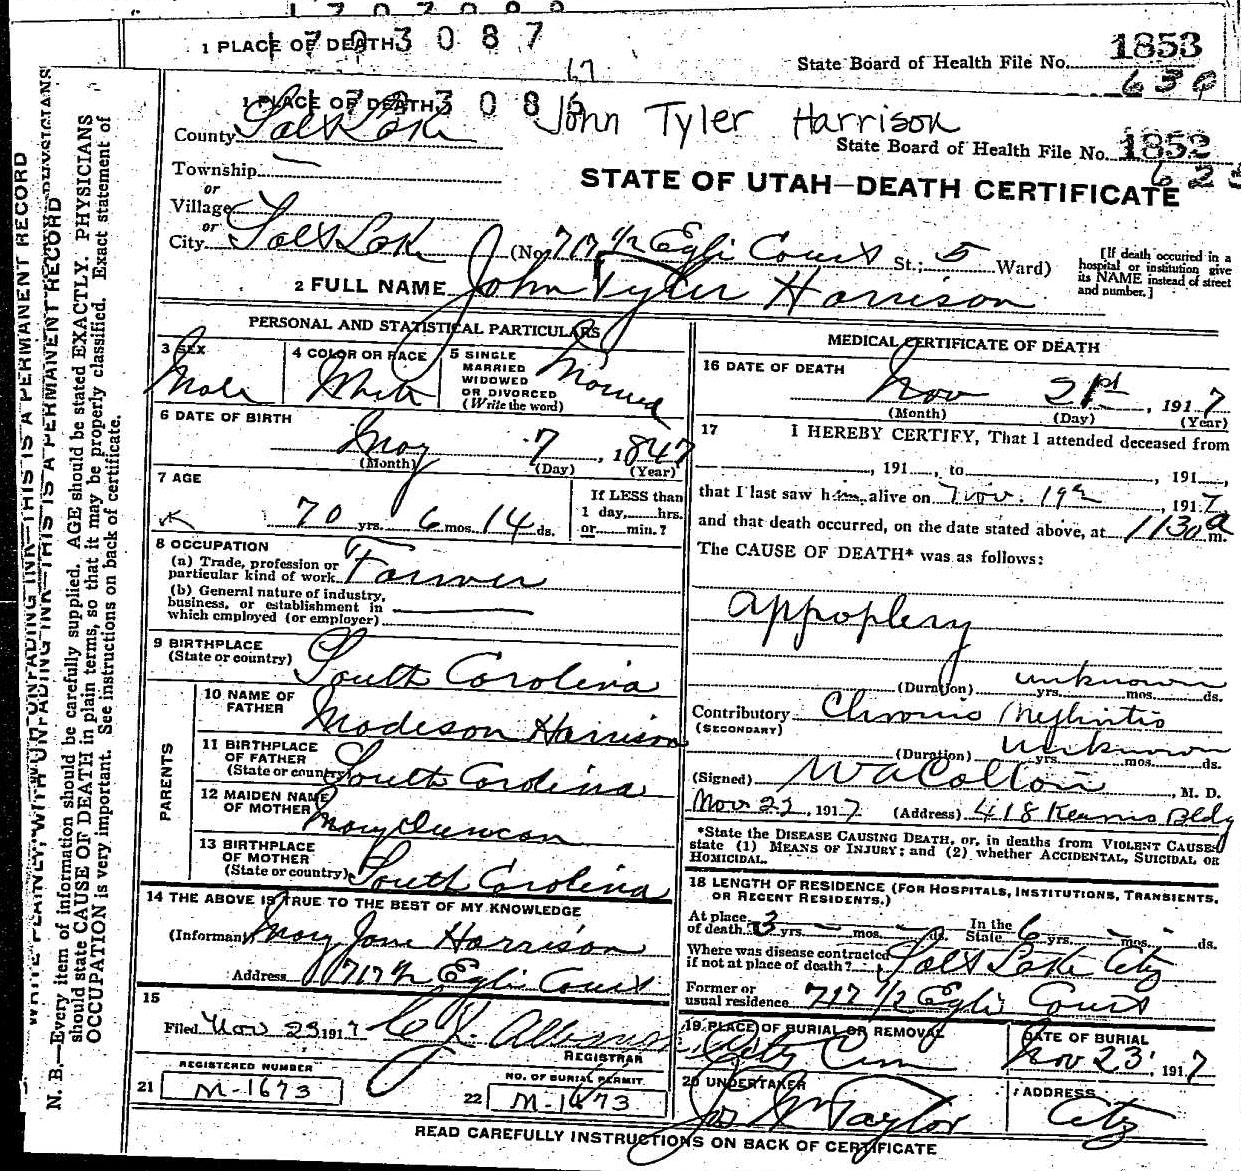 1 PLACE OF DEATH 1 7 0 3 0 8 7
State Board of Health File No. 1853
1 PLACE OF DEATH
John Tyler Harrison
County Salt Lake
State Board of Health File No. 1852
Township —
STATE OF UTAH—DEATH CERTIFICATE
or
Village
or
City Salt Lake (No. 717 1/2 Egli Court St.; 5 Ward)
[If death occurred in a hospital or institution give its NAME instead of street and number.]
2 FULL NAME John Tyler Harrison
PERSONAL AND STATISTICAL PARTICULARS
3 SEX Male
4 COLOR OR RACE White
5 SINGLE MARRIED WIDOWED OR DIVORCED (Write the word) Married
6 DATE OF BIRTH May 7, 1847
(Month) (Day) (Year)
7 AGE 70 yrs. 6 mos. 14 ds.
If LESS than 1 day, hrs. or min.?
8 OCCUPATION
(a) Trade, profession or particular kind of work Farmer
(b) General nature of industry, business, or establishment in which employed (or employer) —
9 BIRTHPLACE
(State or country) South Carolina
PARENTS
10 NAME OF FATHER Madeson Harrison
11 BIRTHPLACE OF FATHER (State or country) South Carolina
12 MAIDEN NAME OF MOTHER Mary Duncan
13 BIRTHPLACE OF MOTHER (State or country) South Carolina
14 THE ABOVE IS TRUE TO THE BEST OF MY KNOWLEDGE
(Informant) Mary Jane Harrison
Address 717 1/2 Egli Court
15
Filed Nov 23 1917
REGISTRAR
REGISTERED NUMBER
21 M-1673
NO. OF BURIAL PERMIT
22 M-1673
MEDICAL CERTIFICATE OF DEATH
16 DATE OF DEATH Nov 21st, 1917
(Month) (Day) (Year)
17 I HEREBY CERTIFY, That I attended deceased from
, 191 , to , 191 ,
that I last saw him alive on Nov. 19th, 1917
and that death occurred, on the date stated above, at 1130 a m.
The CAUSE OF DEATH* was as follows:
Appoplexy
(Duration) unknown yrs. mos. ds.
Contributory Chronic Nephritis
(SECONDARY)
(Duration) unknown yrs. mos. ds.
(Signed) W A Colton, M. D.
Nov 22, 1917 (Address) 418 Kearns Bldg
*State the DISEASE CAUSING DEATH, or, in deaths from VIOLENT CAUSES
state (1) MEANS OF INJURY; and (2) whether ACCIDENTAL, SUICIDAL OR
HOMICIDAL.
18 LENGTH OF RESIDENCE (FOR HOSPITALS, INSTITUTIONS, TRANSIENTS,
OR RECENT RESIDENTS.)
At place of death 3 yrs. — mos. — ds. In the State 6 yrs. — mos. - ds.
Where was disease contracted if not at place of death? Salt Lake City
Former or usual residence 717 1/2 Egli Court
19 PLACE OF BURIAL OR REMOVAL City Cem
DATE OF BURIAL Nov 23, 1917
20 UNDERTAKER Jos Wm Taylor
ADDRESS City
READ CAREFULLY INSTRUCTIONS ON BACK OF CERTIFICATE
WRITE PLAINLY, WITH UNFADING INK—THIS IS A PERMANENT RECORD
N. B.—Every item of information should be carefully supplied. AGE should be stated EXACTLY. PHYSICIANS
should state CAUSE OF DEATH in plain terms, so that it may be properly classified. Exact statement of
OCCUPATION is very important. See instructions on back of certificate.